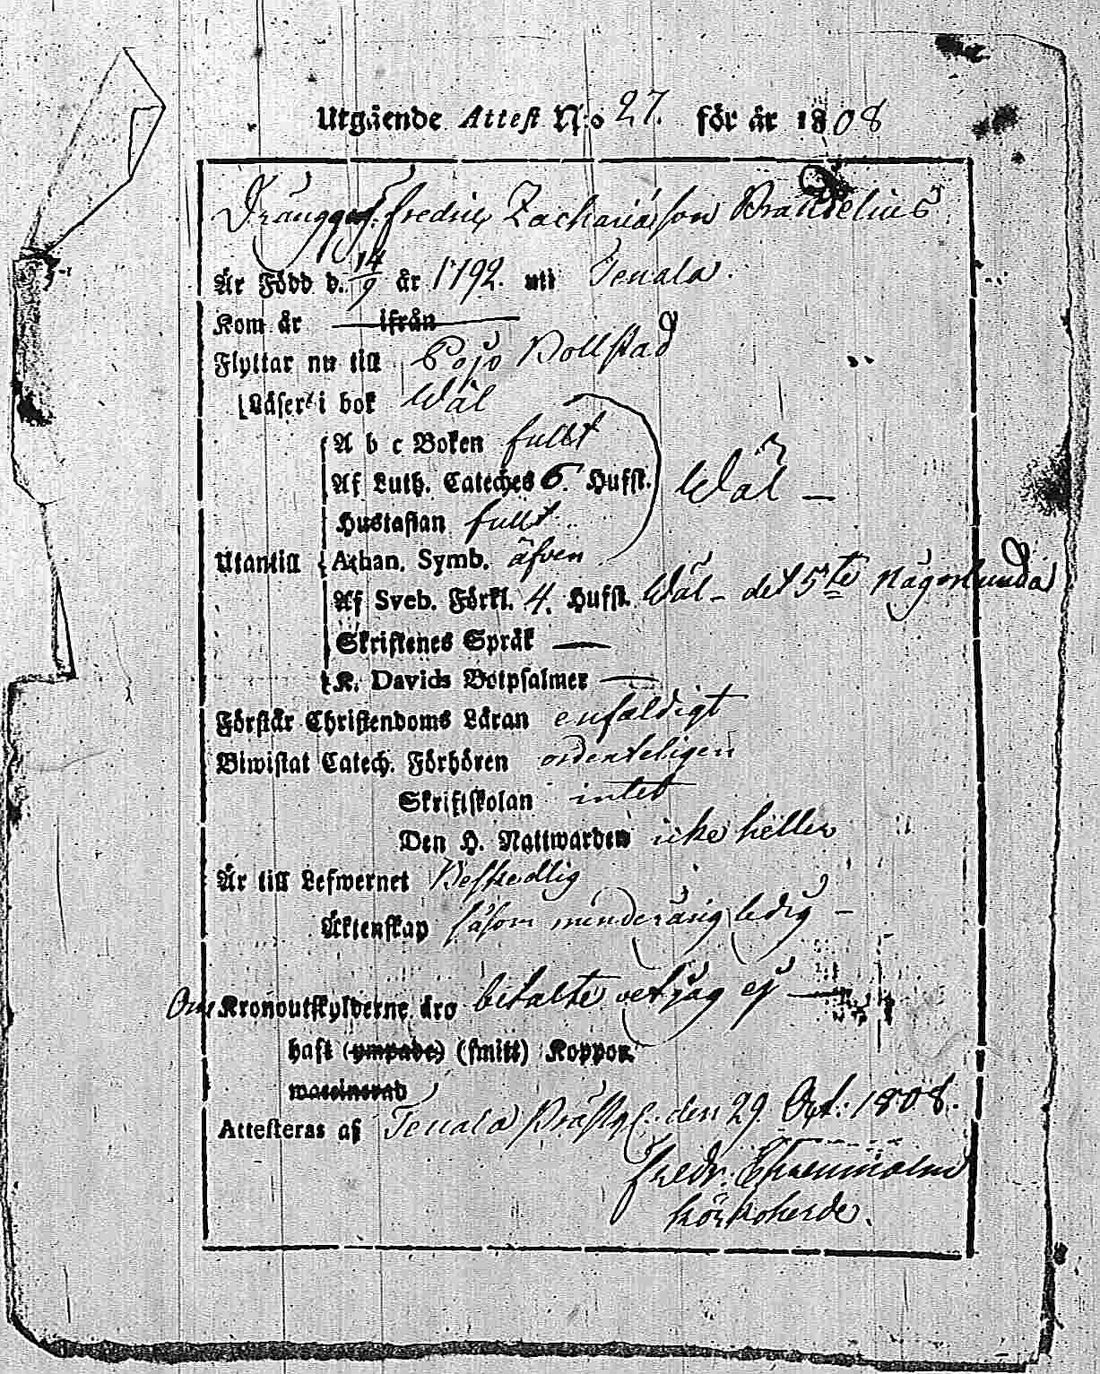 Utgående Attest N:o 27. för år 1808
Dränggoss. Fredric Zachariæson Brandelius
Är Född d. 14/9 år 1792. uti Tenala.
Kom år — ifrån —
Flyttar nu till Pojo Bollstad
Läser i bok Wäl
A b c Boken fullt
Af Luth. Cateches 6. Hufst. Wäl —
Hustaflan fullt
Utantill Athan. Symb. äfven
Af Sveb. Förkl. 4. Hufst. Wäl – det 5te någorlunda
Skriftenes Språk —
K. Davids Botpsalmer —
Förstår Christendoms Läran enfaldigt
Biwistat Catech. Förhören ordenteligen
Skriftskolan intet
Den H. Nattwarden icke heller
Är till Lefwernet Beskedlig
Äktenskap såsom minderårig ledig –
Om Kronoutskylderne äro betalte vet jag ej —
haft (ympade) (smitt) Koppor
Attesteras af Tenala Prästg. den 29. Oct. 1808.
Fredr.
Kÿrkoherde.